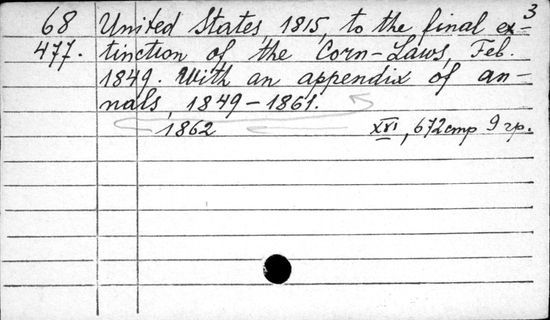 3
68 United States, 1815, to the final ex-
477. tinction of the Corn-Laws, Feb.
1849. With an appendix of an-
nals, 1849-1861.
1862 XVI, 672 cmp 9 гр.